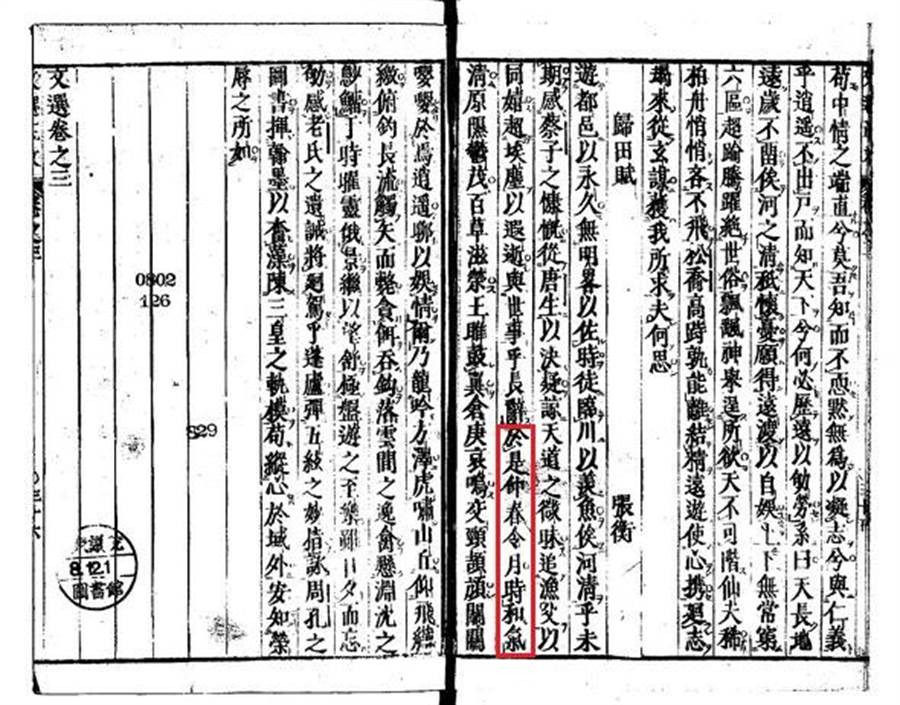 苟中情之端直兮莫吾知而不恧默無爲以凝志兮與仁義
乎逍遥不出戸而知天下兮何必歷遠以劬勞系曰天長地
遠歲不畱俟河之清祗懷憂願得遠渡以自娯上下無常窮
六區超踰騰躍絶世俗飄颻神舉逞所欲天不可階仙夫稀
柏舟悄悄吝不飛松喬高跱孰能離結精遠遊使心携廻志
朅來從玄諆獲我所求夫何思
歸田賦 張衡
遊都邑以永久無明畧以佐時徒臨川以羨魚俟河清乎未
期感蔡子之慷慨從唐生以決疑諒天道之微昧追漁父以
同嬉超埃塵以遐逝與世事乎長辭於是仲春令月時和氣
清原隰鬱茂百草滋榮王雎鼓翼倉庚哀鳴交頸頡頏關關
嚶嚶於焉逍遥聊以娯情爾乃龍吟方澤虎嘯山丘仰飛纖
繳俯釣長流觸矢而斃貪餌吞鈎落雲間之逸禽懸淵沈之
魦鰡于時曜靈俄景繼以望舒極盤遊之至樂雖日夕而忘
劬感老氏之遺誡將廻駕乎蓬廬彈五絃之妙指詠周孔之
圖書揮翰墨以奮藻陳三皇之軌模苟縱心於域外安知榮
辱之所如
829
0802
126
文選卷之三
8.12.1
圖書館